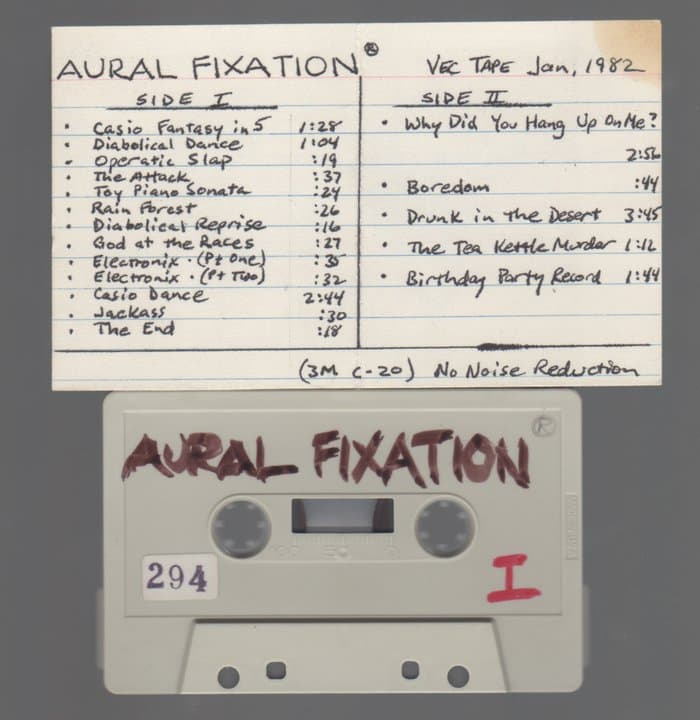 AURAL FIXATION®
VEC TAPE Jan, 1982
SIDE I
• Casio Fantasy in 5 1:28
• Diabolical Dance 1:04
• Operatic Slap :19
• The Attack :37
• Toy Piano Sonata :24
• Rain Forest :26
• Diabolical Reprise :16
• God at the Races :27
• Electronix · (Pt One) :35
• Electronix · (Pt Two) :32
• Casio Dance 2:44
• Jackass :30
• The End :18
SIDE II
• Why Did You Hang Up On Me?
2:56
• Boredom :44
• Drunk in the Desert 3:45
• The Tea Kettle Murdar 1:12
• Birthday Party Record 1:44
(3M C-20) No Noise Reduction
®
AURAL FIXATION
294
I